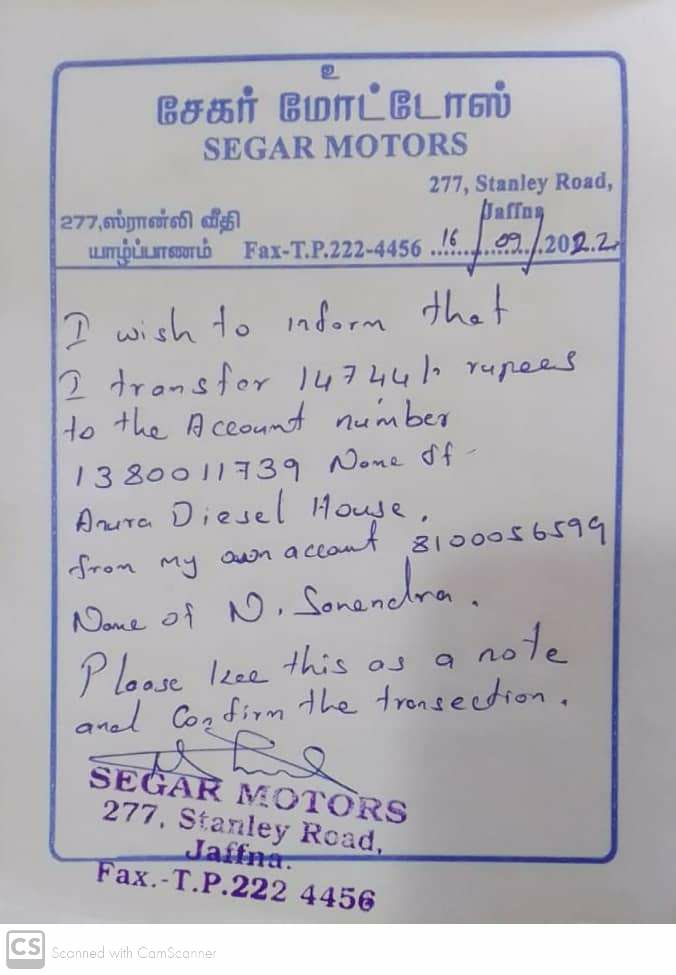 உ
சேகர் மோட்டோஸ்
SEGAR MOTORS
277, Stanley Road,
Jaffna
277,ஸ்ரான்லி வீதி
யாழ்ப்பாணம் Fax-T.P.222-4456 16/09/2022
I wish to inform that
I transfer 147441/- rupees
to the Account number
1380011739 Name of
Anura Diesel House.
from my own account 8100056599
Name of N. Sanendra.
Please kee this as a note
and Confirm the transection.
SEGAR MOTORS
277, Stanley Road,
Jaffna.
Fax.-T.P.222 4456
CS Scanned with CamScanner